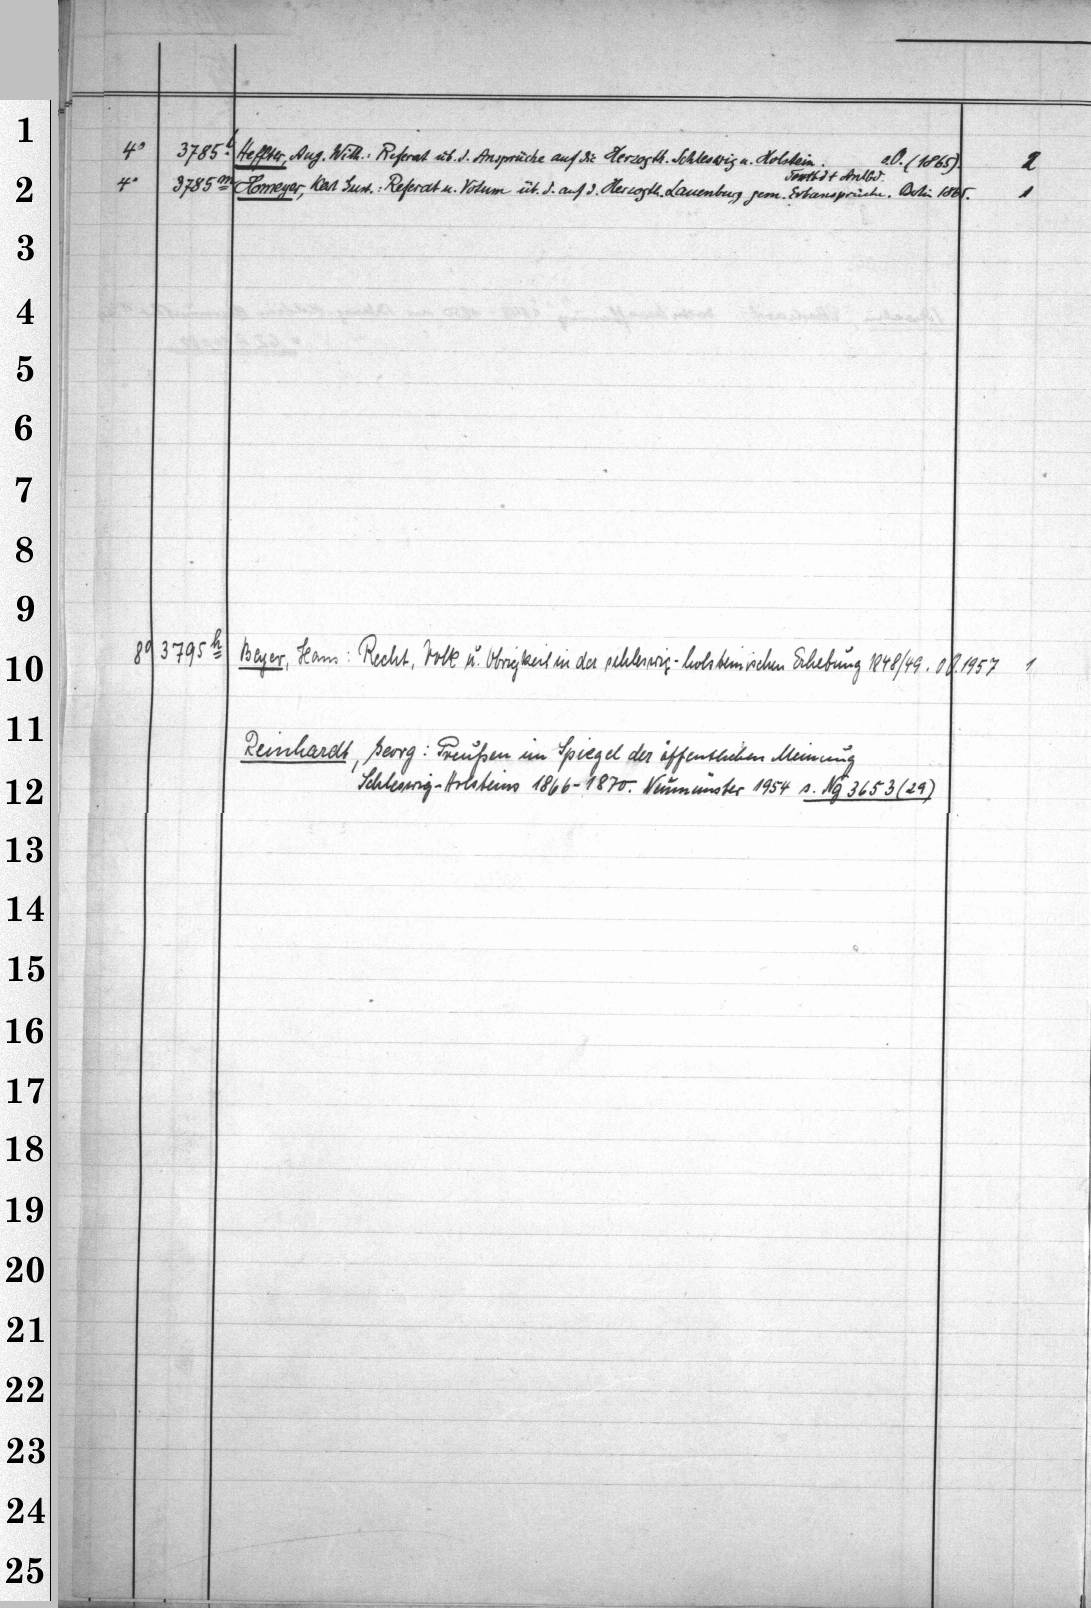 1
4° 3785 l Heffter, Aug. Wilh.: Referat üb. d. Ansprüche auf die Herzogth. Schleswig u. Holstein. o.O. (1865). 2
Textbd + Anlbd.
2
4° 3785 m Homeyer, Karl Gust.: Referat u. Votum üb. d. auf d. Herzogth. Lauenburg gem. Erbansprüche. Berlin 1865. 1
3
4
5
6
7
8
9
10
8° 3795 h Beyer, Hans: Recht, Volk u. Obrigkeit in der schleswig-holsteinischen Erhebung 1848/49. o O. 1957 1
11
Reinhardt, Georg: Preußen im Spiegel der öffentlichen Meinung
12
Schleswig-Holsteins 1866-1870. Neumünster 1954 s. Ng 3653(29)
13
14
15
16
17
18
19
20
21
22
23
24
25